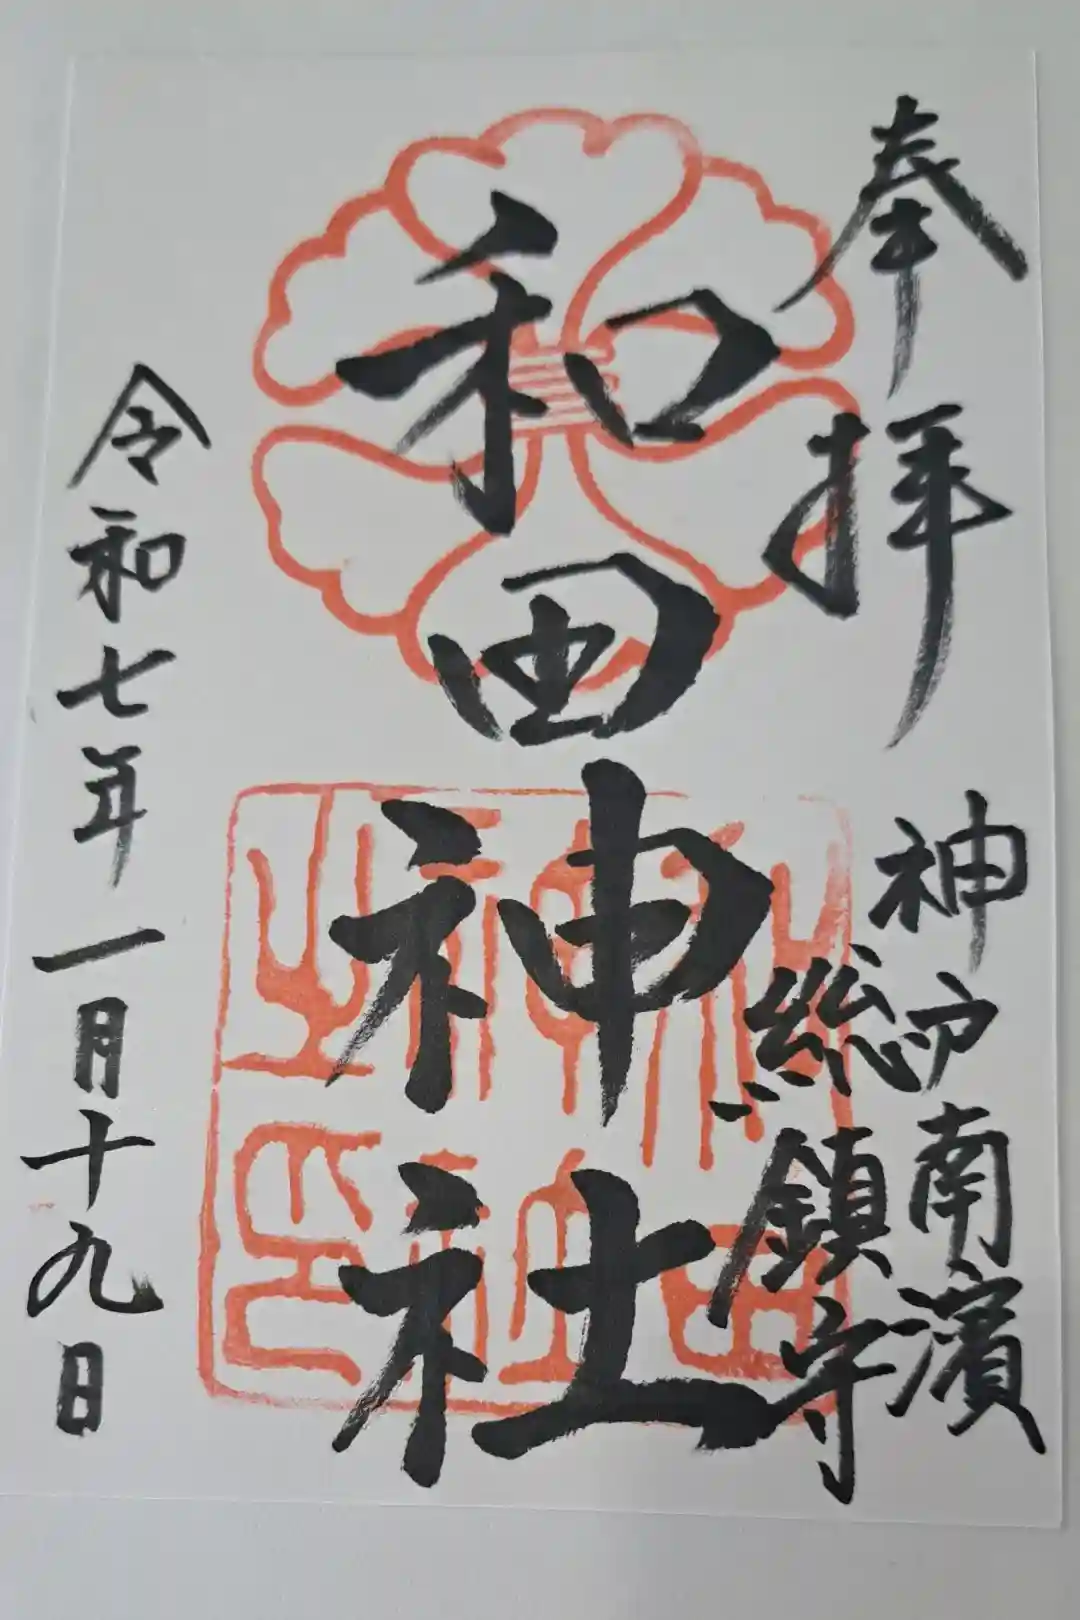 奉拝
神戸南濱
総鎮守
和田神社
和田神社之印
令和七年一月十九日